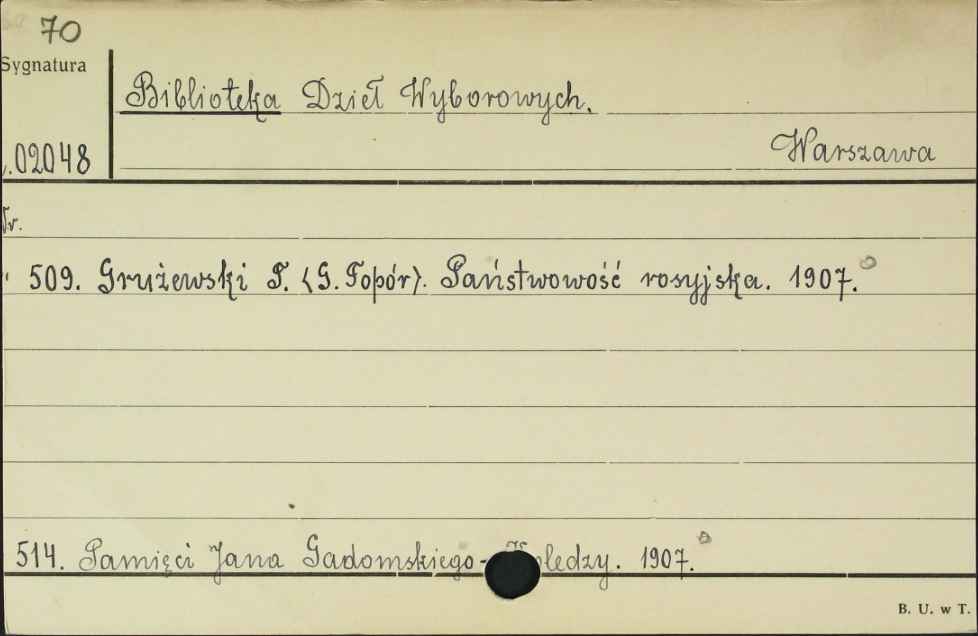 70
Sygnatura
Biblioteka Dzieł Wyborowych.
.02048
Warszawa
Nr.
" 509. Grużewski T. (G. Topór). Państwowość rosyjska. 1907.
514. Pamięci Jana Gadomskiego - Koledzy. 1907.
B. U. w T.